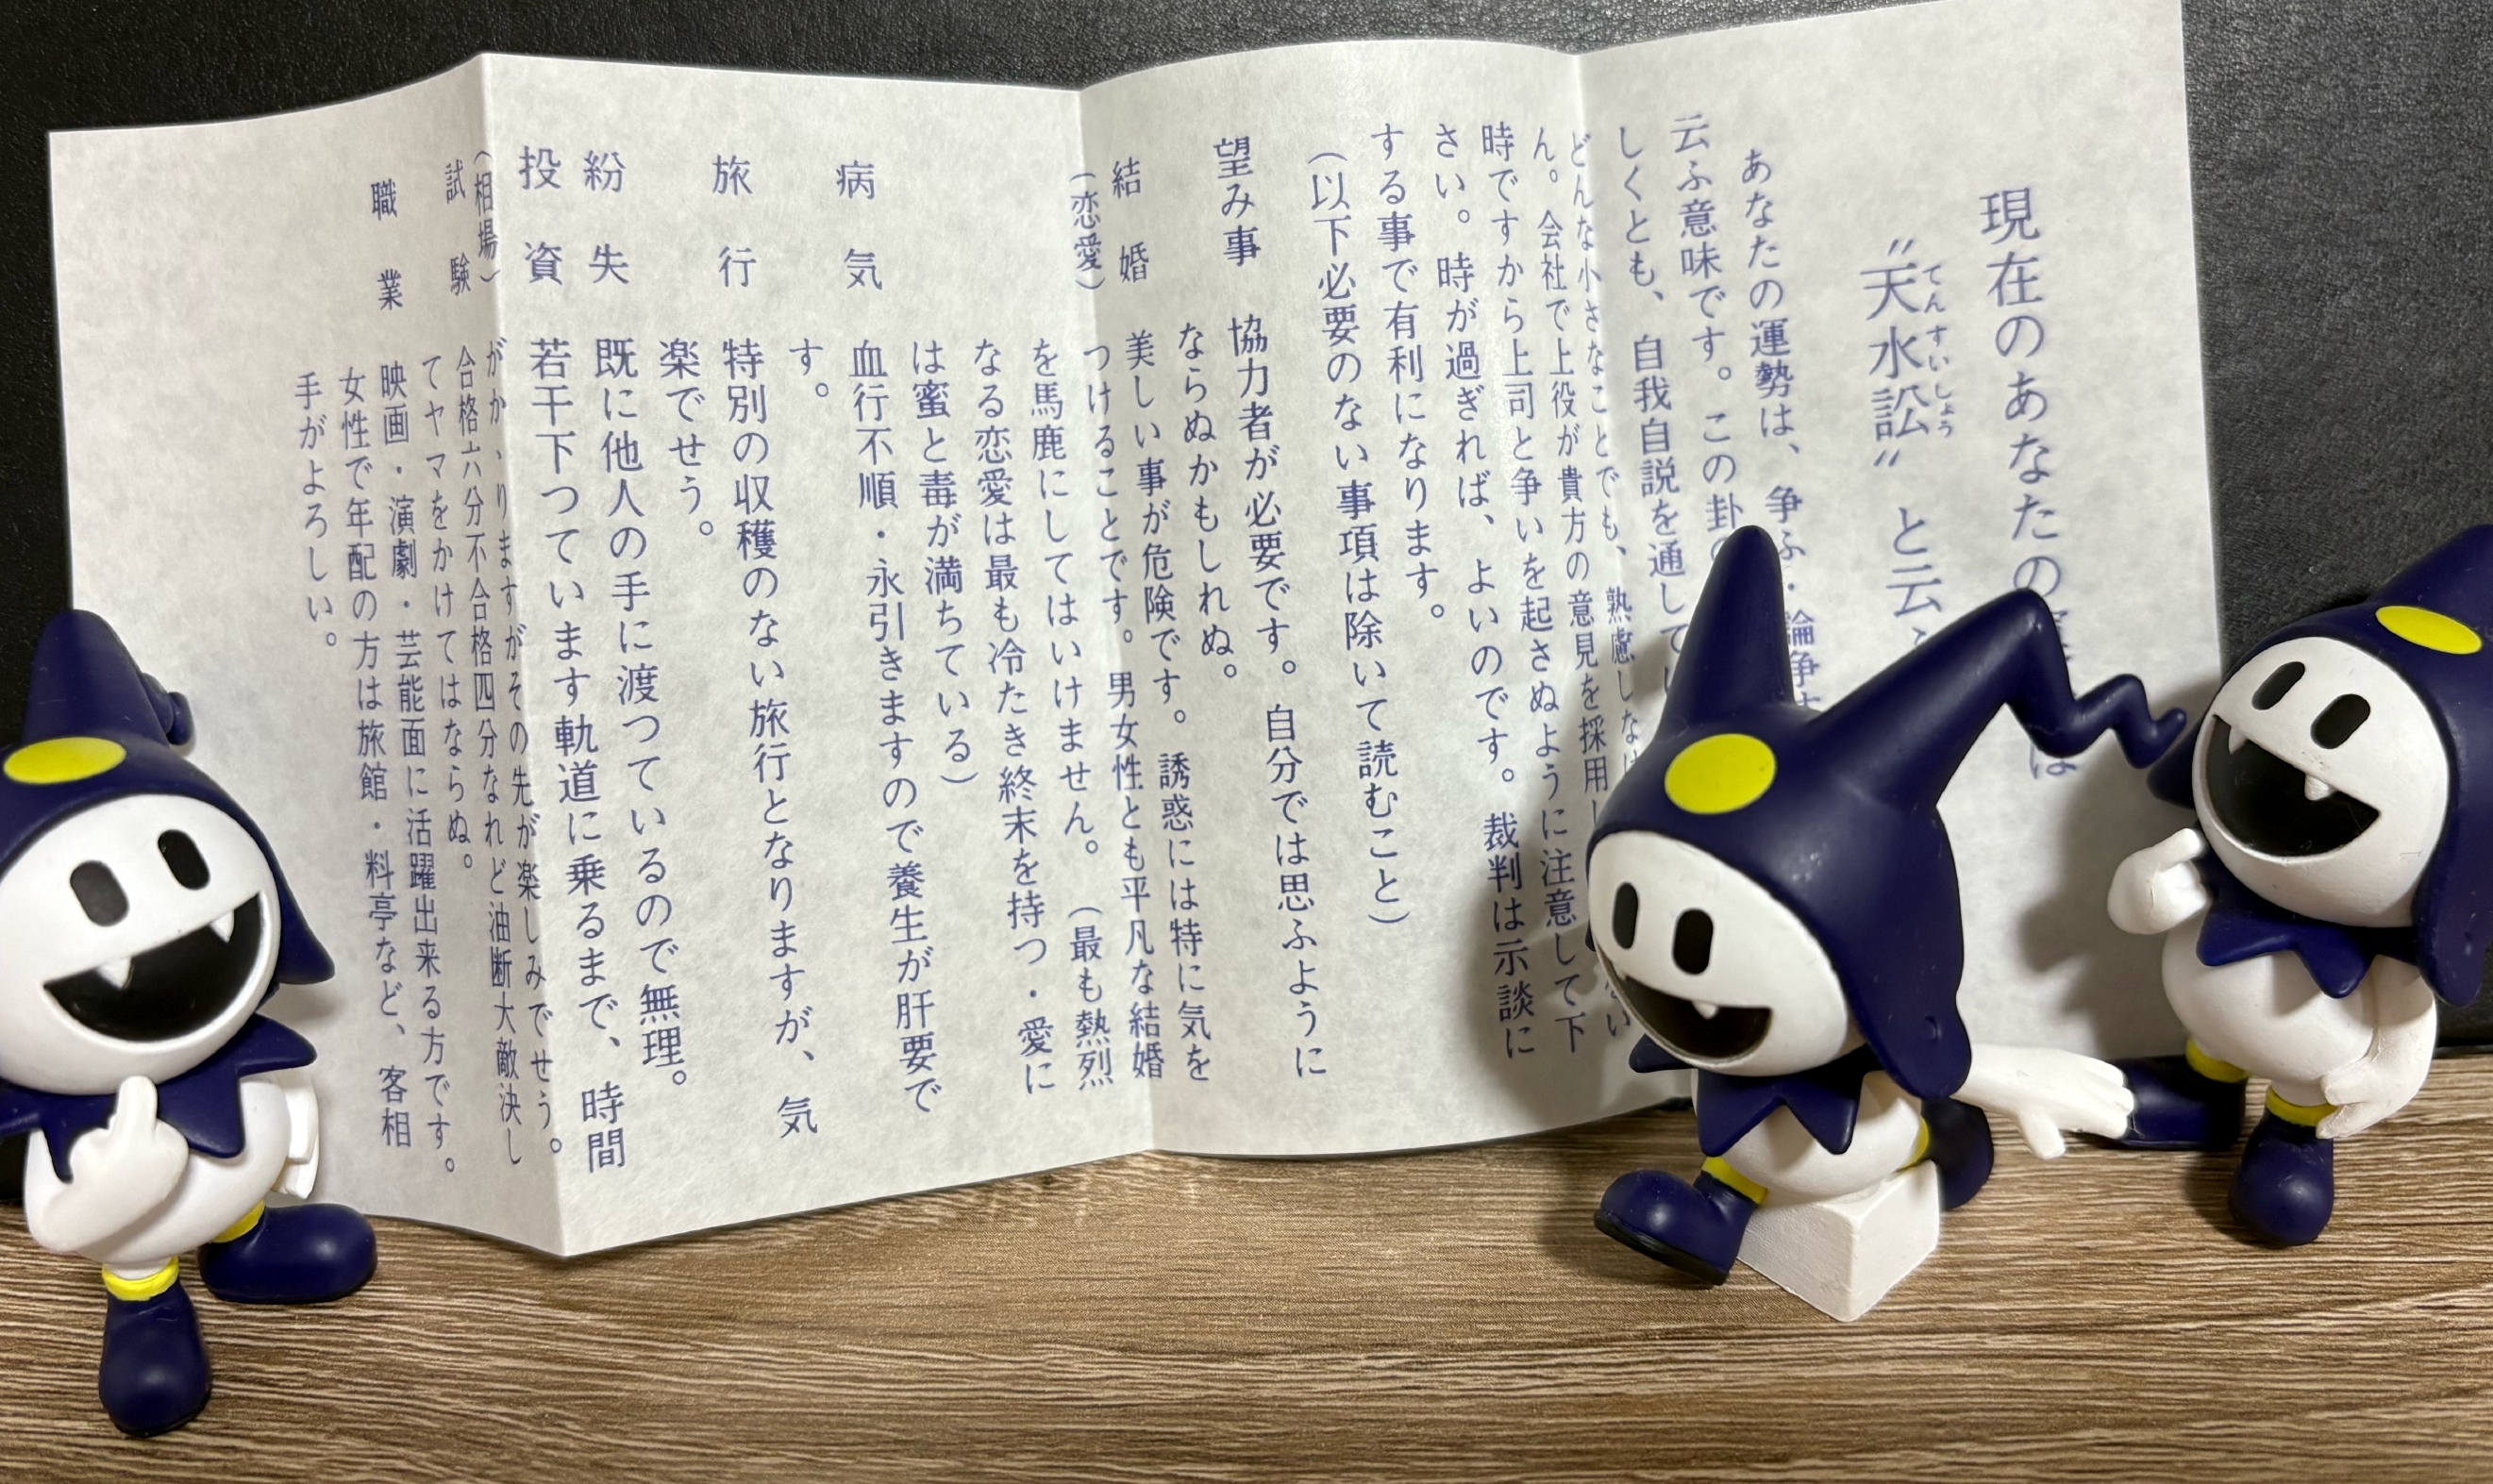 現在のあなたの
は
てんすいしょう
〝天水訟〟と云
あなたの運勢は、争ふ・論争
云ふ意味です。この卦
しくとも、自我自説を通して
どんな小さなことでも、熟慮しな
い
ん。会社で上役が貴方の意見を採用し
時ですから上司と争いを起さぬように注意して下
さい。時が過ぎれば、よいのです。裁判は示談に
する事で有利になります。
(以下必要のない事項は除いて読むこと)
望み事 協力者が必要です。自分では思ふように
ならぬかもしれぬ。
結婚 美しい事が危険です。誘惑には特に気を
(恋愛) つけることです。男女性とも平凡な結婚
を馬鹿にしてはいけません。(最も熱烈
なる恋愛は最も冷たき終末を持つ・愛に
は蜜と毒が満ちている)
病気 血行不順・永引きますので養生が肝要で
す。
旅行 特別の収穫のない旅行となりますが、気
楽でせう。
紛失 既に他人の手に渡つているので無理。
投資 若干下つています軌道に乗るまで、時間
(相場) がかゝりますがその先が楽しみでせう。
試験 合格六分不合格四分なれど油断大敵決し
てヤマをかけてはならぬ。
職業 映画・演劇・芸能面に活躍出来る方です。
女性で年配の方は旅館・料亭など、客相
手がよろしい。